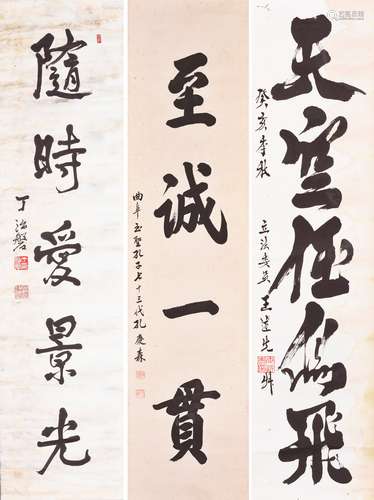 天空任鳥飛
癸亥季秋
立法委員王進先
至誠一貫
曲阜至聖孔子七十三代孔慶森
隨時愛景光
丁治磐